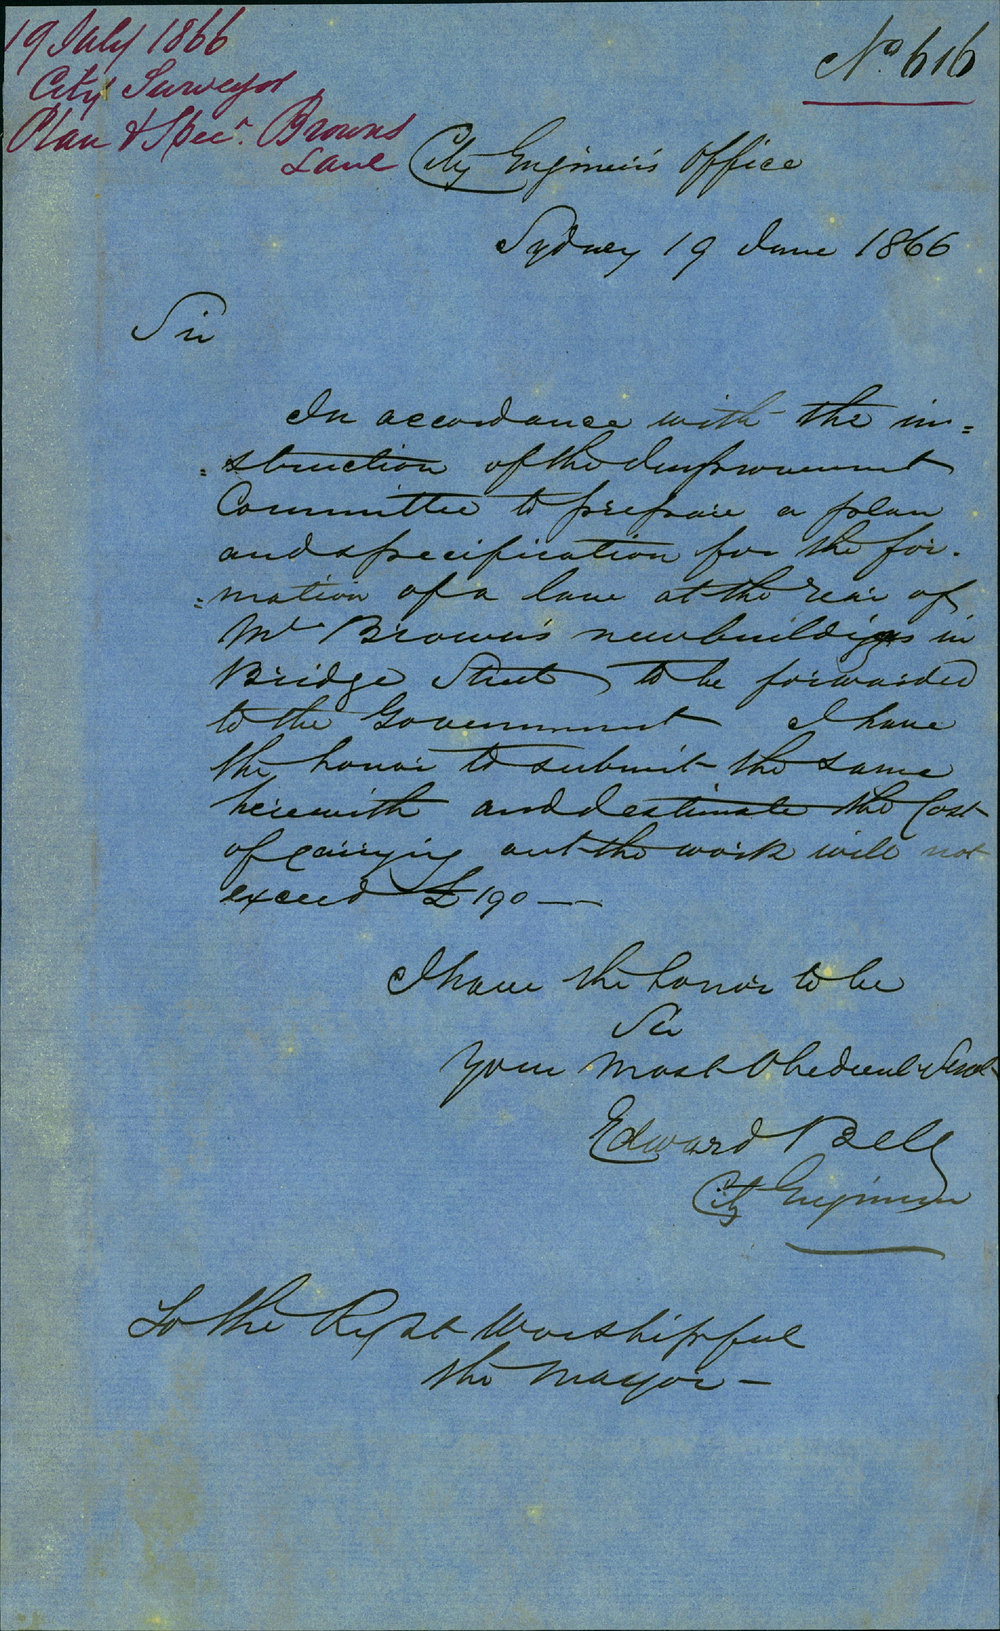 19 July 1866
City Surveyor
Plan & Specn. Browns
Lane
No 616
City Engineer's Office
Sydney 19 June 1866
Sir
In accordance with the in=
=struction of the Improvement
Committee to prepare a plan
and specification for the for-
=mation of a lane at the rear of
Mr Brown's new buildings in
Bridge Street to be forwarded
to the Government I have
the honor to submit the same
herewith and estimate the Cost
of carrying out the work will not
exceed £190 —
I have the honor to be
Sir
Your Most Obedient Servt
Edward Bell
City Engineer
To the Right Worshipful
the Mayor —